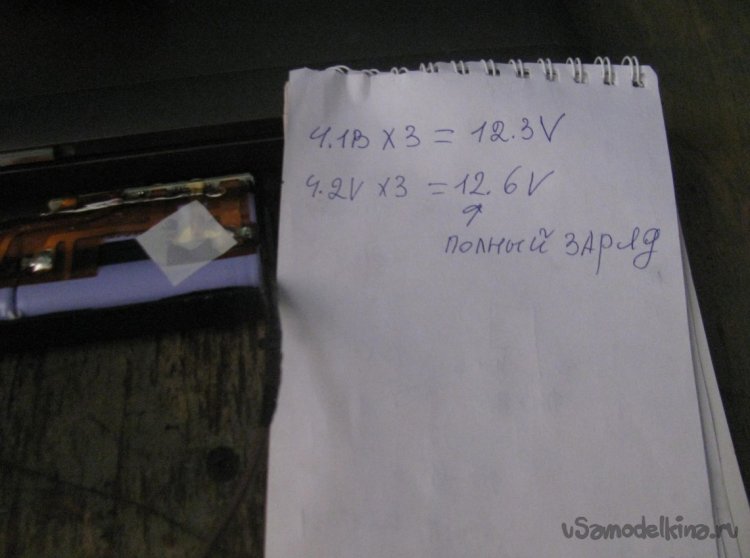 4.1В x 3 = 12.3V
4.2V x3 = 12.6V
полный заряд
vSamodelkina.ru